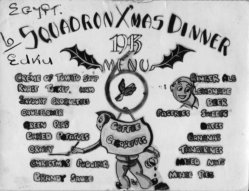 EGYPT.
6 SQUADRON X'MAS DINNER
EDKU
1943
MENU
CRÈME OF TOMATO SOUP
ROAST TURKEY, HAM
SAVOURY CROQUETTES
CAULIFLOWER
GREEN PEAS
CREAMED POTATOES
GRAVY
CHRISTMAS PUDDING
BRANDY SAUCE
COFFEE
CIGARETTES
GINGER ALE
LEMONADE
BEER
PASTRIES SWEETS
DATES
TANGERINES
MIXED NUTS
MINCE PIES